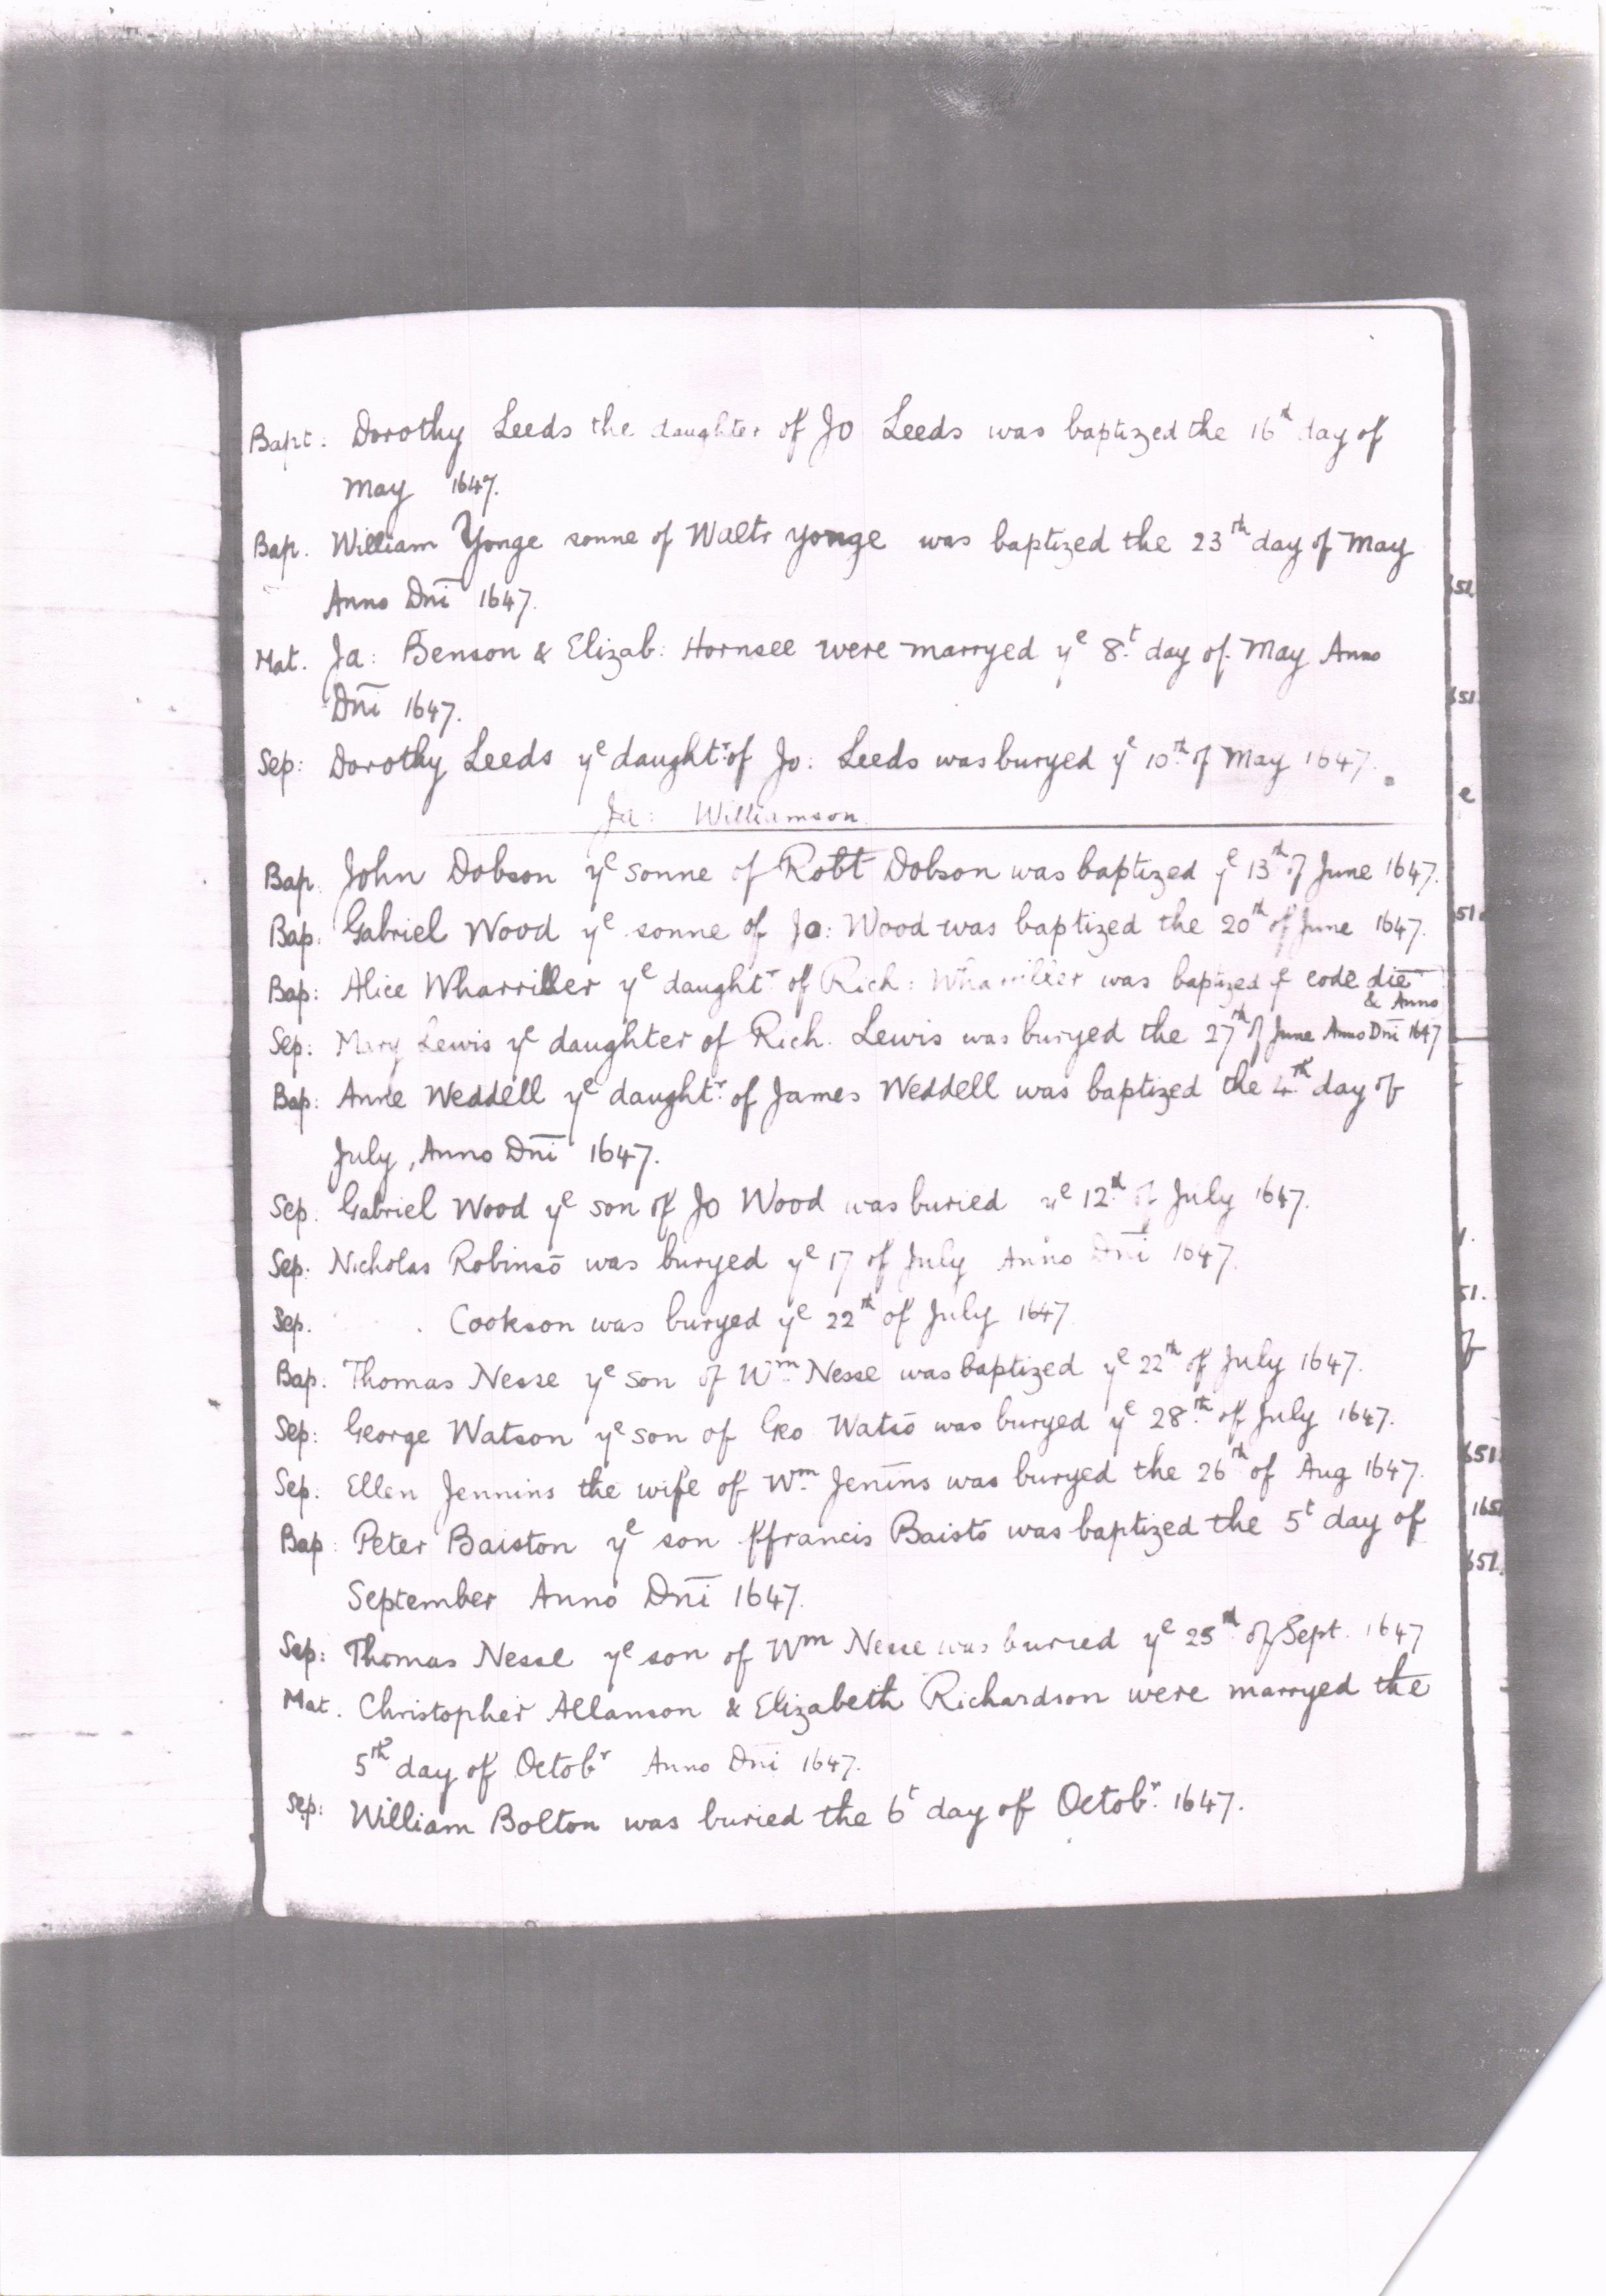 Bapt: Dorothy Leeds the daughter of Jo Leeds was baptized the 16th day of
May 1647.
Bap. William Yonge sonne of Waltr Yonge was baptized the 23th day of May
Anno Dñi 1647.
Mat. Ja: Benson & Elizab: Hornsee were marryed ye 8t day of May Anno
Dñi 1647.
Sep: Dorothy Leeds ye daughtr of Jo: Leeds was buryed ye 10th of May 1647.
Ja: Williamson.
Bap. John Dobson ye sonne of Robt Dobson was baptized ye 13th of June 1647.
Bap: Gabriel Wood ye sonne of Jo: Wood was baptized the 20th of June 1647.
Bap: Alice Wharriller ye daughtr of Rich: Wharriller was baptized eode die
& Anno
Sep: Mary Lewis ye daughter of Rich. Lewis was buryed the 27th of June Anno Dñi 1647
Bap: Anne Weddell ye daughtr of James Weddell was baptized the 4th day of
July, Anno Dñi 1647.
Sep. Gabriel Wood ye son of Jo Wood was buried ye 12th of July 1647.
Sep. Nicholas Robinsō was buryed ye 17 of July Anno Dñi 1647.
Sep. Cookson was buryed ye 22th of July 1647
Bap. Thomas Nesse ye son of Wm Nesse was baptized ye 22th of July 1647.
Sep: George Watson ye son of Geo Watsō was buryed ye 28th of July 1647.
Sep. Ellen Jennins the wife of Wm Jenīns was buryed the 26th of Aug 1647.
Bap: Peter Baiston ye son ffrancis Baistō was baptized the 5t day of
September Anno Dñi 1647.
Sep: Thomas Nesse ye son of Wm Nesse was buried ye 25th of Sept. 1647
Mat. Christopher Allanson & Elizabeth Richardson were marryed the
5th day of Octobr Anno Dñi 1647.
Sep: William Bolton was buried the 6t day of Octobr. 1647.